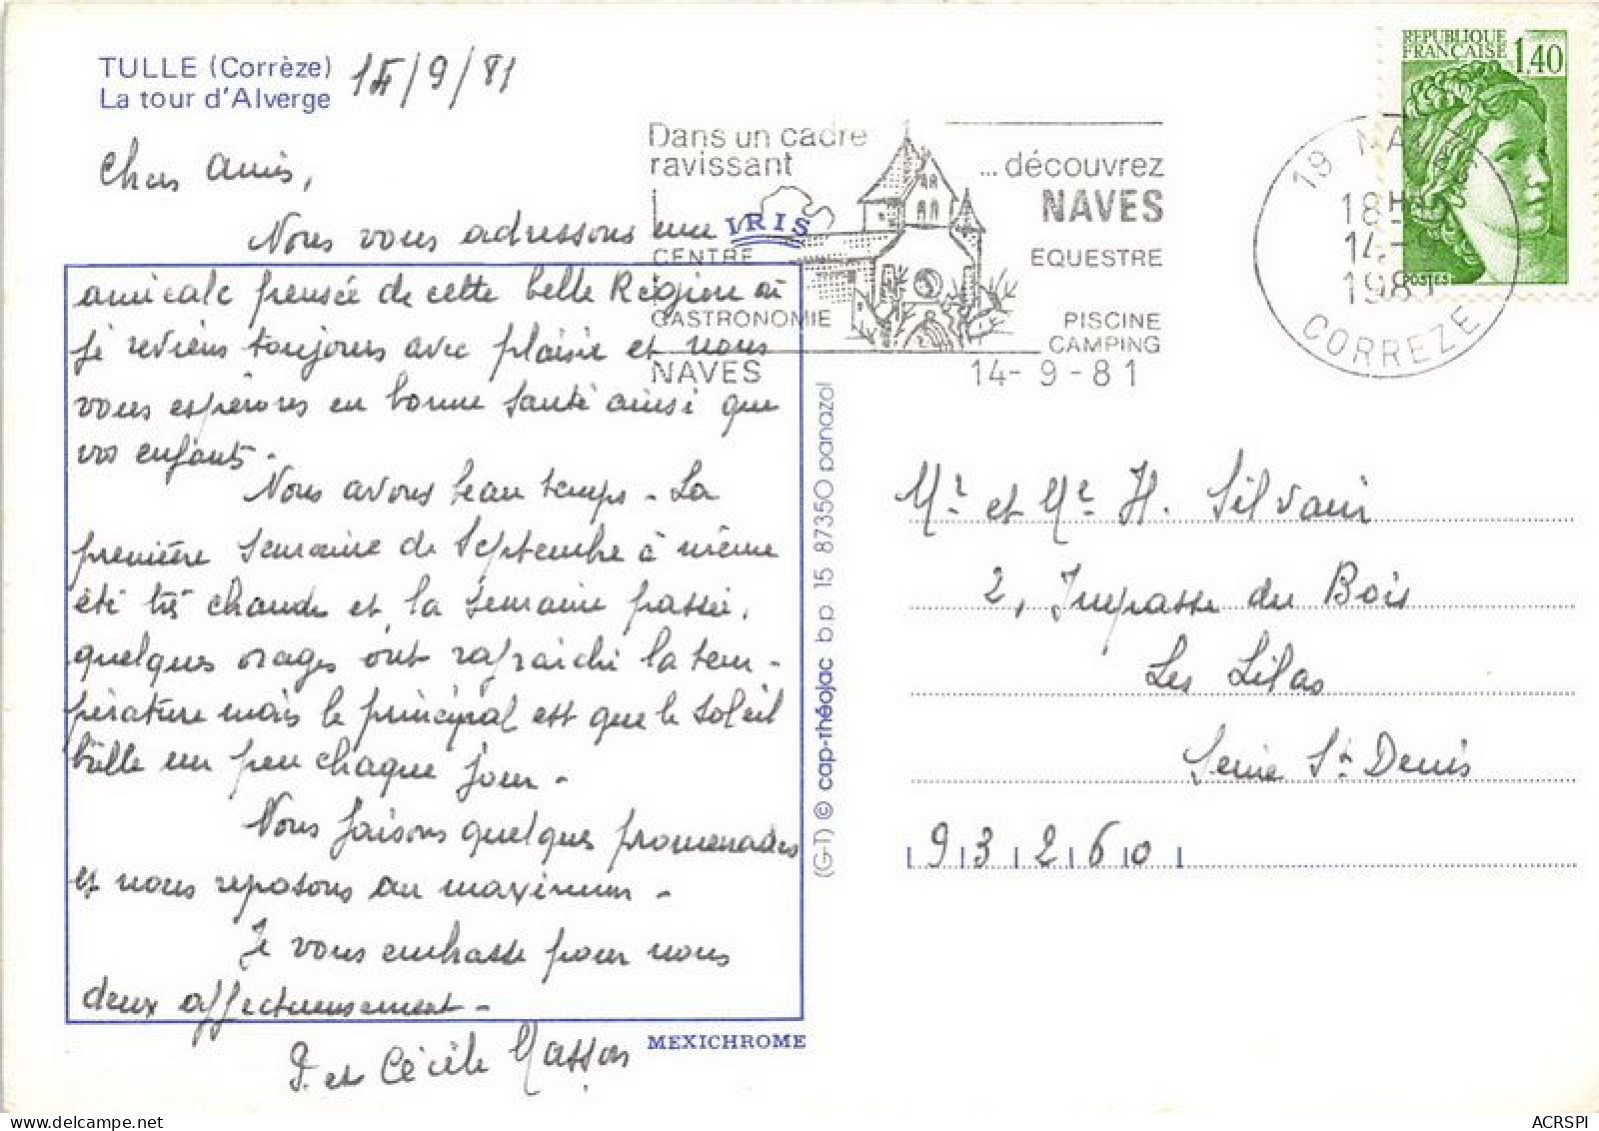 TULLE (Corrèze)
La tour d'Alverge
14/9/81
Chers amis,
Nous vous adressons une
amicale pensée de cette belle Région où
je reviens toujours avec plaisir et nous
vous espérons en bonne santé ainsi que
vos enfants.
Nous avons beau temps - La
première semaine de Septembre a même
été très chaude et la semaine passée,
quelques orages ont rafraichi la tem-
pérature mais le principal est que le soleil
brille un peu chaque jour -
Nous faisons quelques promenades
et nous reposons au maximum -
Je vous embrasse pour nous
deux affectueusement -
P. et Cécile Masson
MEXICHROME
IRIS
(G-T) © cap-théojac b.p. 15 87350 panazol
Dans un cadre
ravissant
... découvrez
NAVES
CENTRE
EQUESTRE
GASTRONOMIE
PISCINE
CAMPING
NAVES
14-9-81
19 NAVES
18H
14-
1981
CORREZE
REPUBLIQUE
FRANÇAISE
1,40
POSTES
Mr et Me H. Silvain
2, Impasse du Bois
Les Lilas
Seine St Denis
93260
ACRSPI